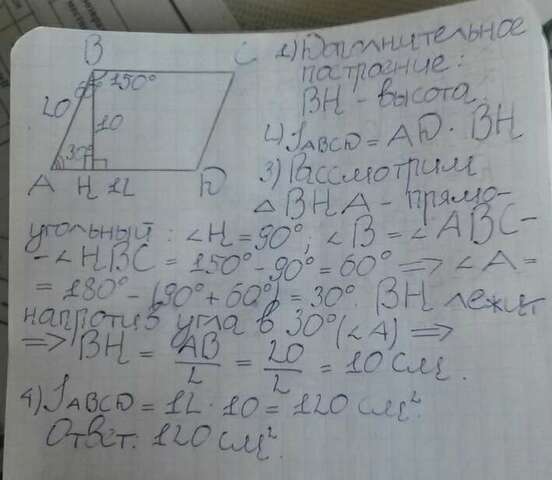 B C
150°
20 10
30°
A H 12 D
1) Дополнительное
построение:
BH - высота.
2) S ABCD = AD · BH
3) Рассмотрим
△ BHA - прямо-
угольный: ∠H = 90°, ∠B = ∠ABC -
- ∠HBC = 150° - 90° = 60° ⇒ ∠A =
= 180° - (90° + 60°) = 30°. BH лежит
напротив угла в 30° (∠A) ⇒
⇒ BH = AB/2 = 20/2 = 10 см.
4) S ABCD = 12 · 10 = 120 см².
Ответ: 120 см².